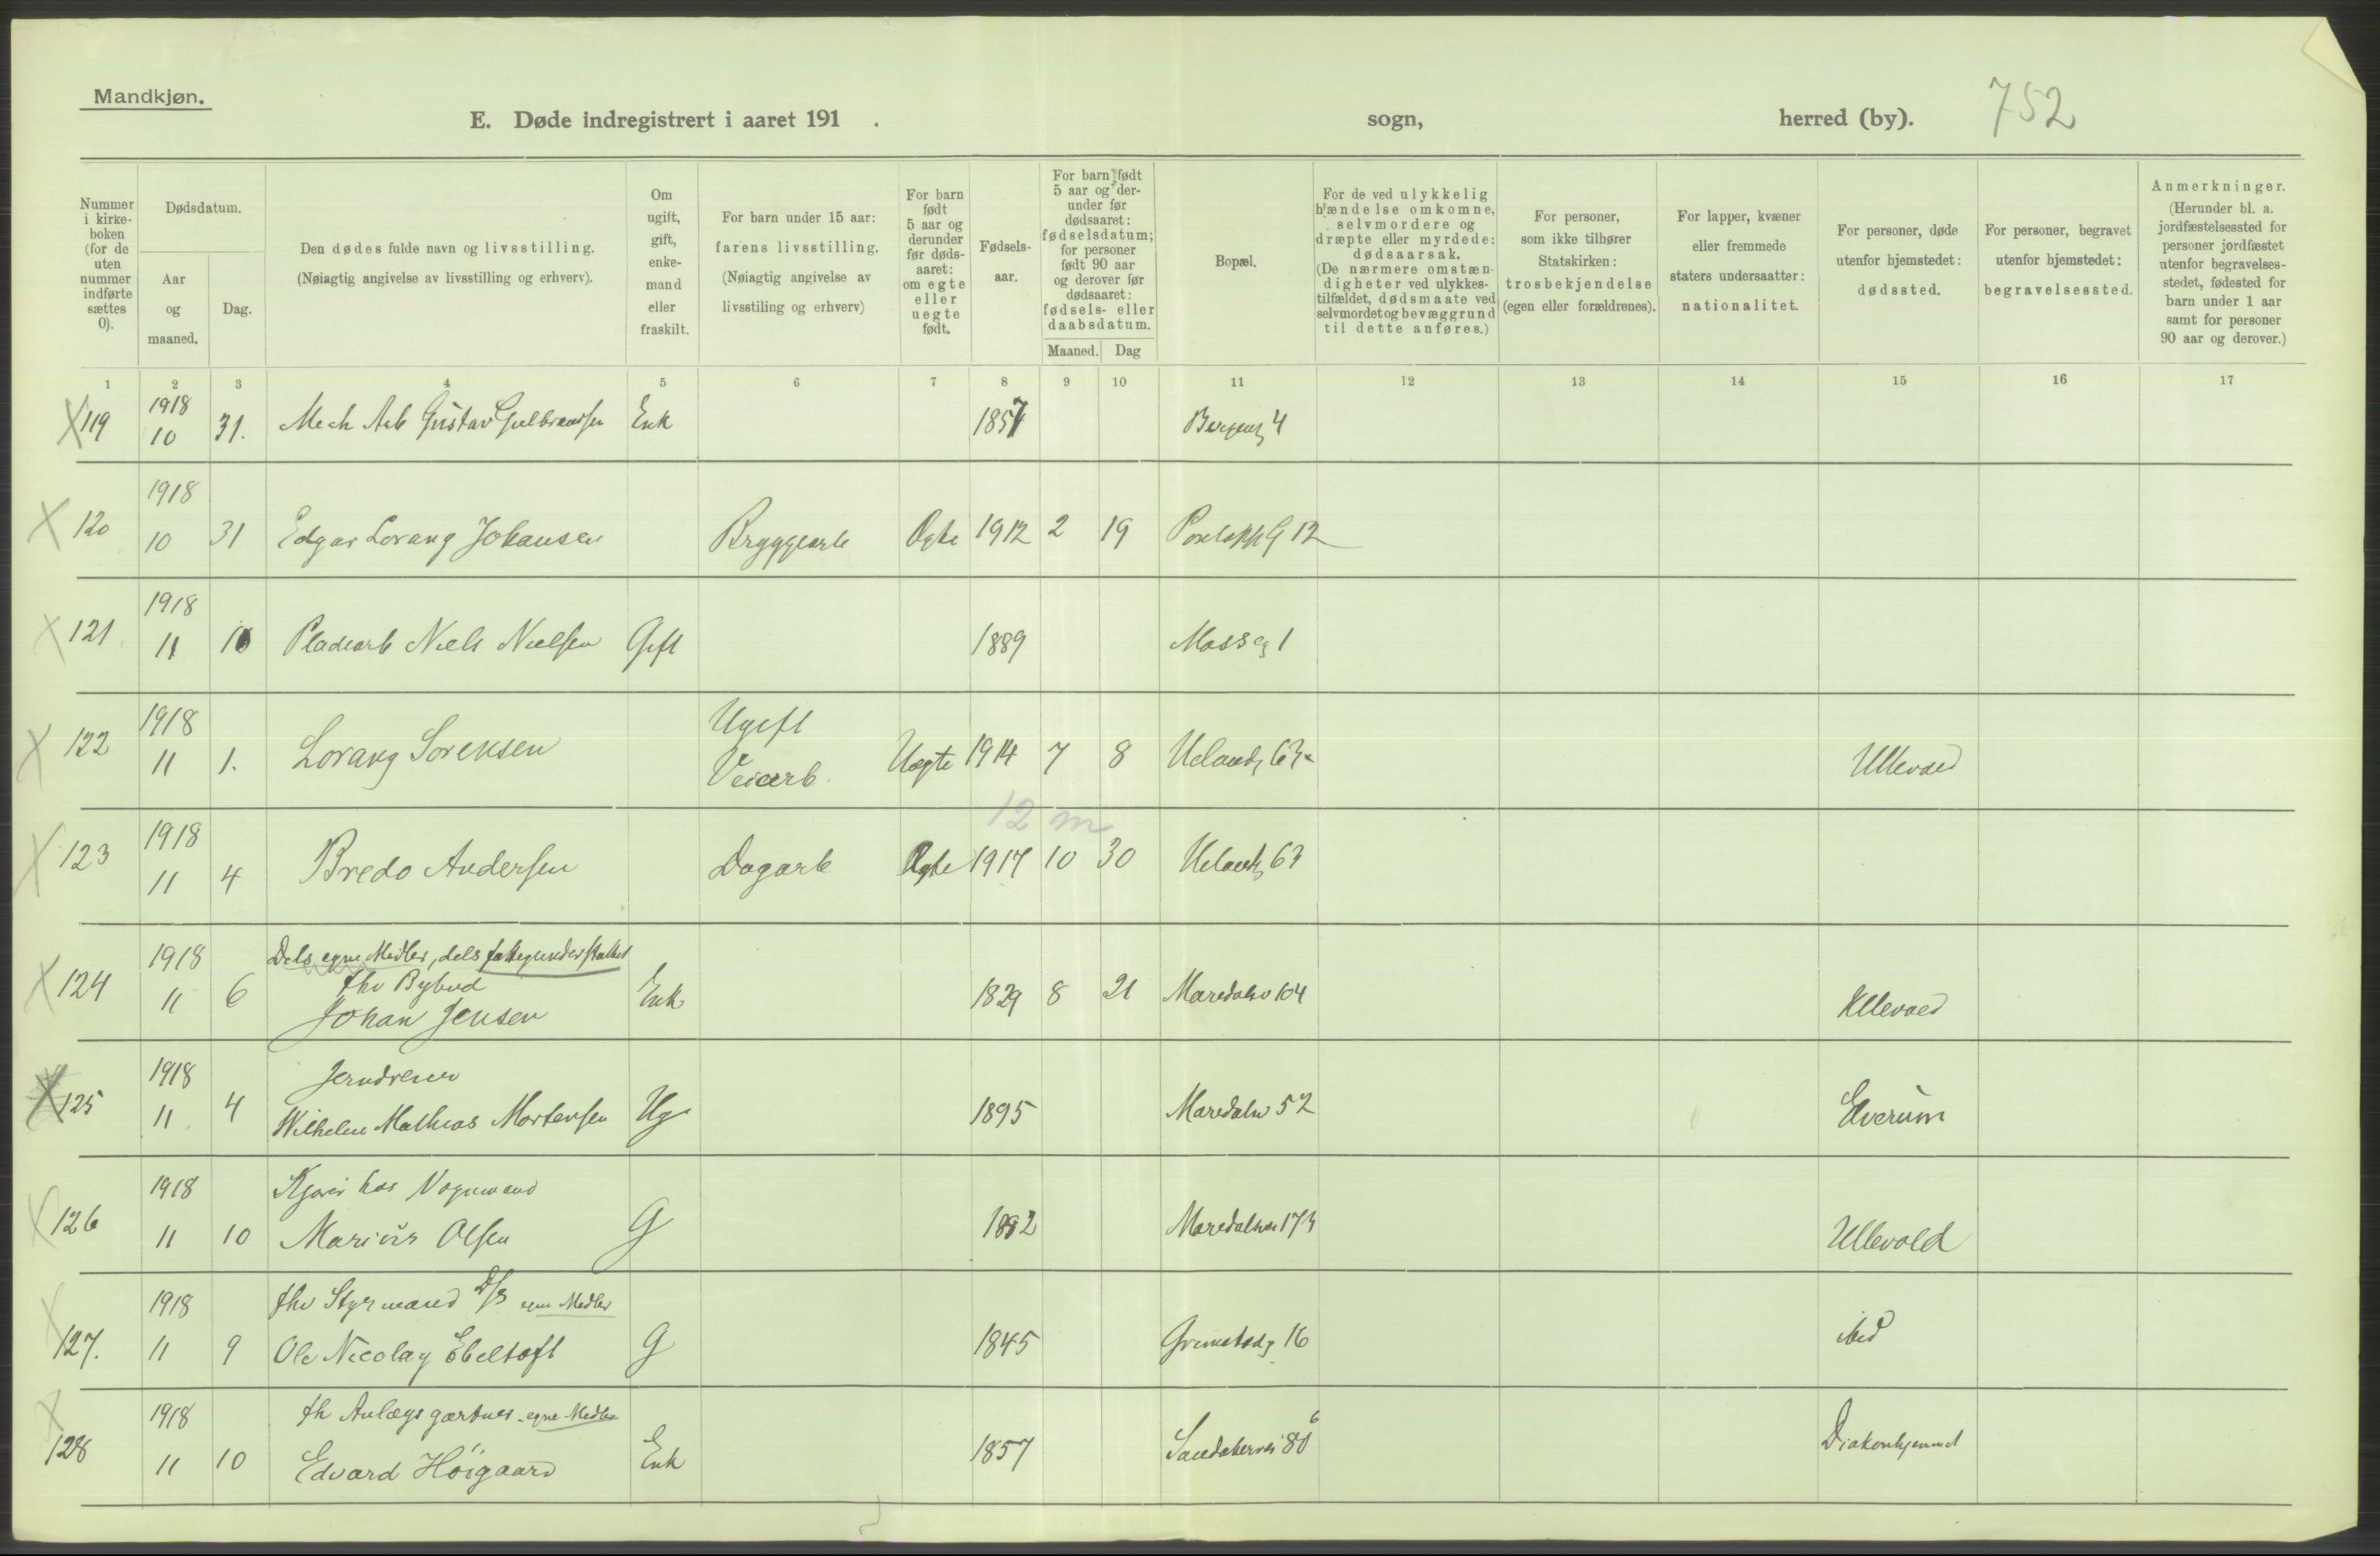 Mandkjøn.
E. Døde indregistrert i aaret 191 .
sogn,
herred (by).
752
Nummer i kirke-boken (for de uten nummer indførte sættes 0).
Dødsdatum.
Aar og maaned.
Dag.
Den dødes fulde navn og livsstilling.
(Nøiagtig angivelse av livsstilling og erhverv).
Om ugift, gift, enke-mand eller fraskilt.
For barn under 15 aar: farens livsstilling. (Nøiagtig angivelse av livsstiling og erhverv)
For barn født 5 aar og derunder før døds-aaret: om egte eller uegte født.
Fødsels-aar.
For barn født 5 aar og der-under før dødsaaret: fødselsdatum; for personer født 90 aar og derover før dødsaaret: fødsels- eller daabsdatum.
Maaned. Dag
Bopæl.
For de ved ulykkelig hændelse omkomne, selvmordere og dræpte eller myrdede: dødsaarsak. (De nærmere omstæn-digheter ved ulykkes-tilfældet, dødsmaate ved selvmordet og bevæggrund til dette anføres.)
For personer, som ikke tilhører Statskirken: trosbekjendelse (egen eller forældrenes).
For lapper, kvæner eller fremmede staters undersaatter: nationalitet.
For personer, døde utenfor hjemstedet: dødssted.
For personer, begravet utenfor hjemstedet: begravelsessted.
Anmerkninger. (Herunder bl. a. jordfæstelsessted for personer jordfæstet utenfor begravelses-stedet, fødested for barn under 1 aar samt for personer 90 aar og derover.)
1 2 3 4 5 6 7 8 9 10 11 12 13 14 15 16 17
1918
119 10 31. Mech Arb Gustav Gulbrandsen Enk 1857 Bergensg 4
1918
120 10 31 Edgar Lorang Johansen Bryggearb Egte 1912 2 19 G 12
1918
121 11 10 Pladearb Niels Nielsen Gift 1889 Mosseg 1
1918 Ugift
122 11 1. Lorang Sorensen Veiarb. Uegte 1914 7 8 Uelandsg 63 Ullevaal
12 m
1918
123 11 4 Bredo Andersen Dagarb Egte 1917 10 30 Uelandsg 63
1918 Dels egne Midler, dels fattigunderstøttet
fhv Bybud
124 11 6 Johan Jensen Enk 1829 8 21 Maridalsv 104 Ullevaal
1918 Jerndreier
125 11 4 Wilhelm Mathias Mortensen Ug 1895 Maridalsv 52 Elverum
1918 Kjører hos Vognmand
126 11 10 Marius Olsen G 1882 Maridalsvei 173 Ullevold
1918 fhv Styrmand D/S egne Midler
127. 11 9 Ole Nicolay Ebeltoft G 1845 Grimstadg 16 ibid
1918 fh Anlægsgartner - egne Midler
128 11 10 Edvard Höigaard Enk 1857 Sandakervei 80 6 Diakonhjemmet